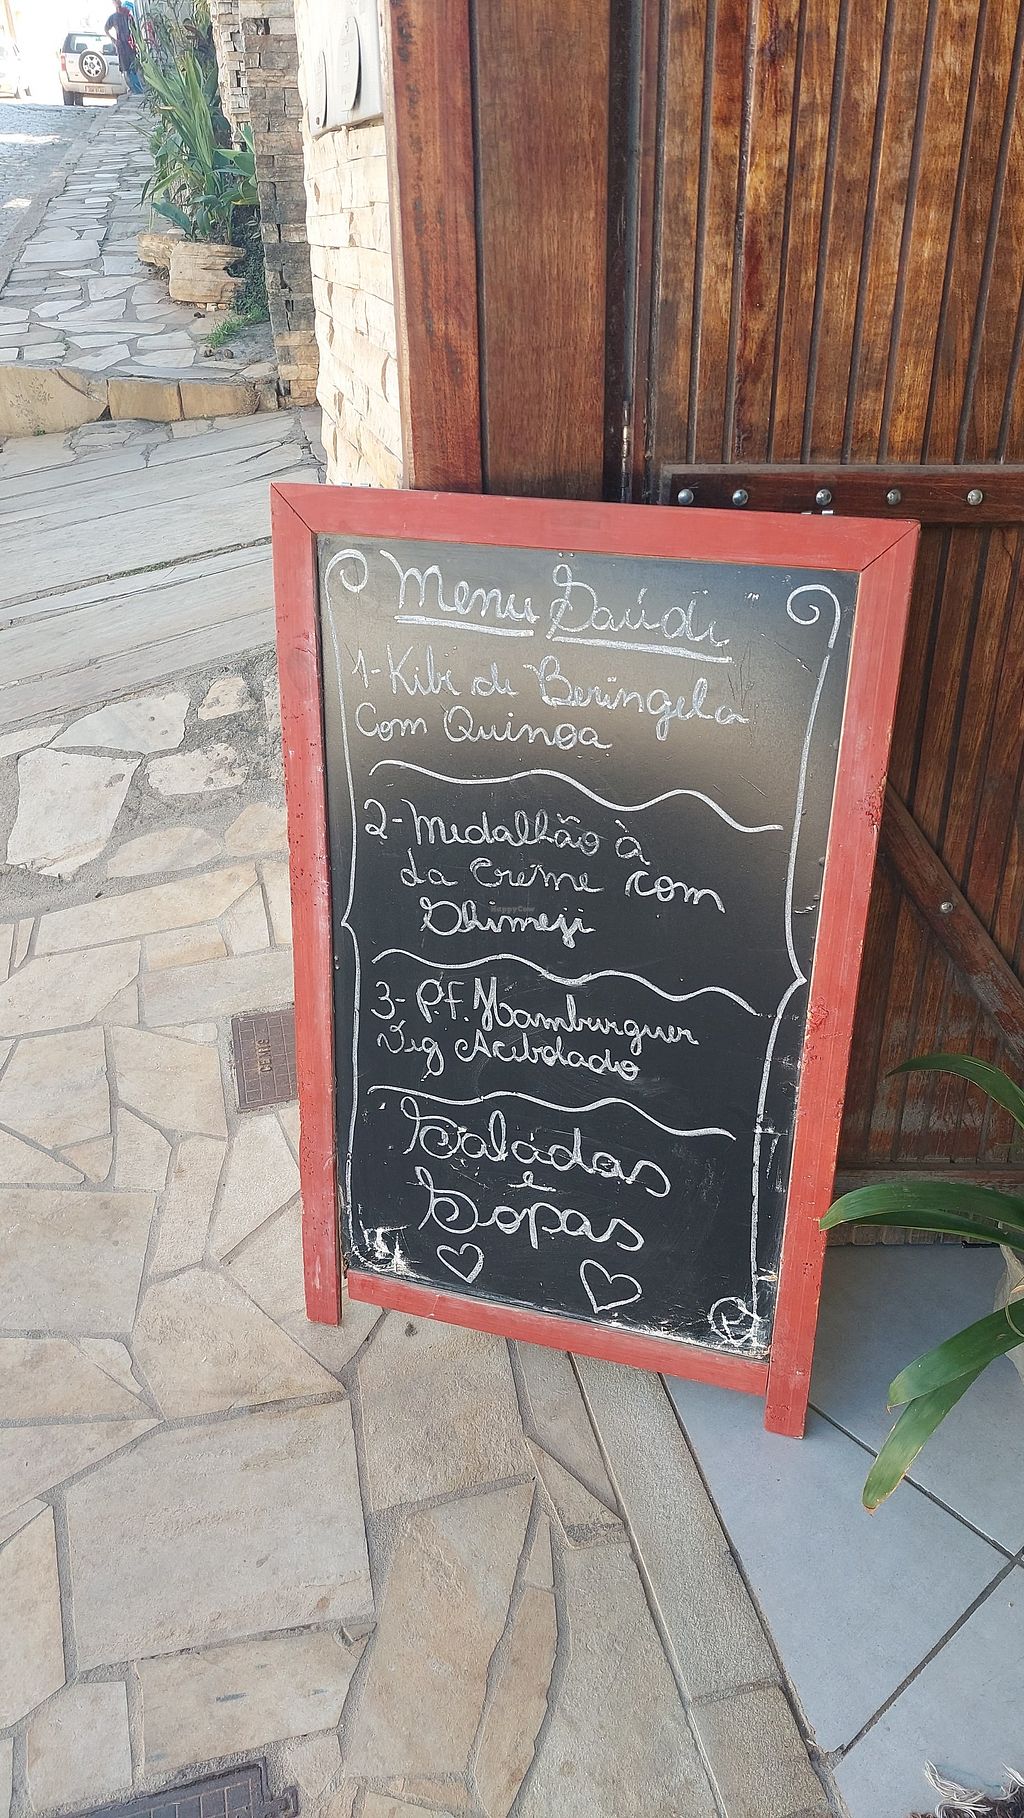 Menu Saúde
1-Kibe de Beringela
Com Quinoa
2-Medalhão à
la Creme com
Shimeji
3- P.F. Hamburguer
Veg Acebolado
Saládas
e
Sopas
HappyCow